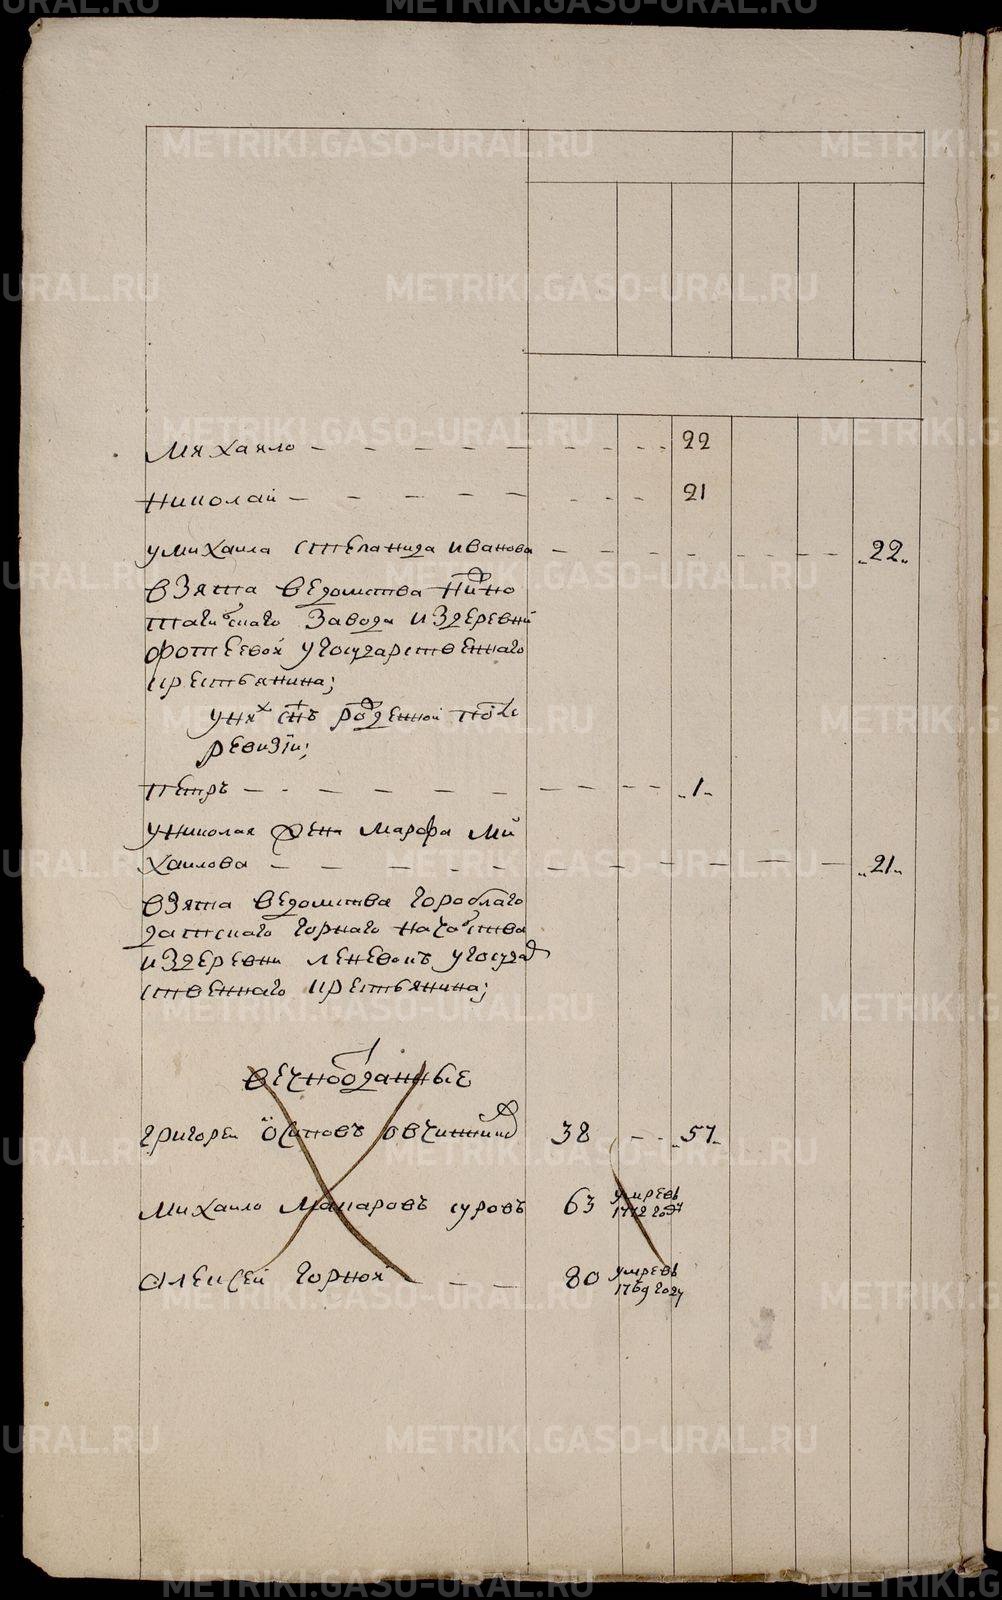 Михаило - - - - - - - - 22
Николай - - - - - - - - 21
у михаила степанида иванова - - - - - - „22„
взята ведомства нижно
тагилскаго завода издеревни
фотеевой угосударственнаго
крестьянина;
уних снъ рожденной после
ревизïи;
петръ - - - - - - - - - „1„
униколая жена марфа ми
хаилова - - - - - - - - - - „21„
взята ведомства гороблаго
датскаго горнаго началства
издеревни леневокъ угосудар
ственнаго крестьянина;
вечноотданные
григореи осиповъ овчинников 38 - - „57„
михаило макаровъ суровъ 63 умрѣвъ
1772 году
алексей горной - - - 80 умрѣвъ
1769 году
METRIKI.GASO-URAL.RU